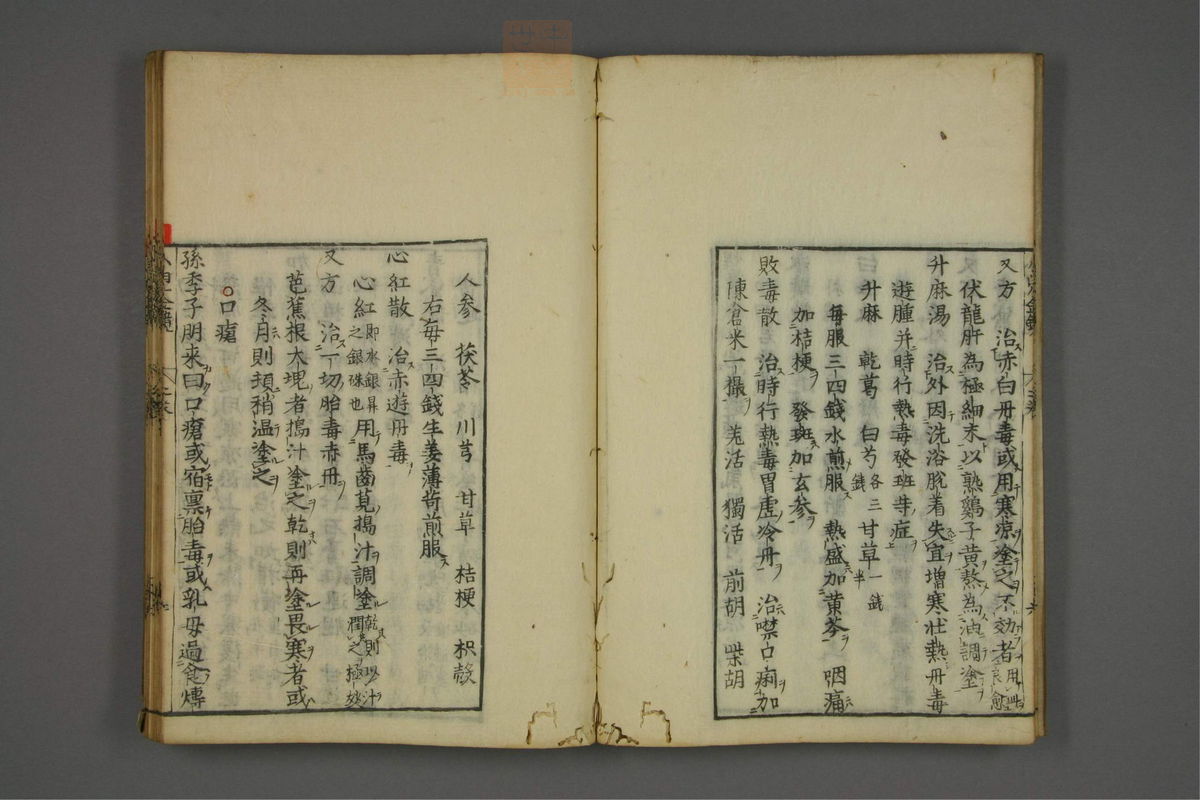 又方　治赤白丹毒或用寒凉塗之不効者用此良愈
伏龍肝為極細末以熟鷄子黄熬為油調塗
升麻湯　治外因洗浴脱着失宜増寒壮熱丹毒
遊腫并時行熱毒發斑等症
升麻　乾葛　白芍各三錢　甘草一錢半
毎服三四錢水煎服　熱盛加黄芩　咽痛
加桔梗　發斑加玄参
敗毒散　治時行熱毒胃虚冷丹　治噤口痢加
陳倉米一撮　羌活　獨活　前胡　柴胡
人参　茯苓　川芎　甘草　桔梗　枳殻
右毎三四錢生姜薄荷煎服
心紅散　治赤遊丹毒
心紅即水銀昇之銀硃也用馬齒莧搗汁調塗乾則以汁潤之極效
又方　治一切胎毒赤丹
芭蕉根大塊者搗汁塗之乾則再塗畏寒者或
冬月則頓稍温塗之
○口瘡
孫季子朋来曰口瘡或宿稟胎毒或乳母過食煿